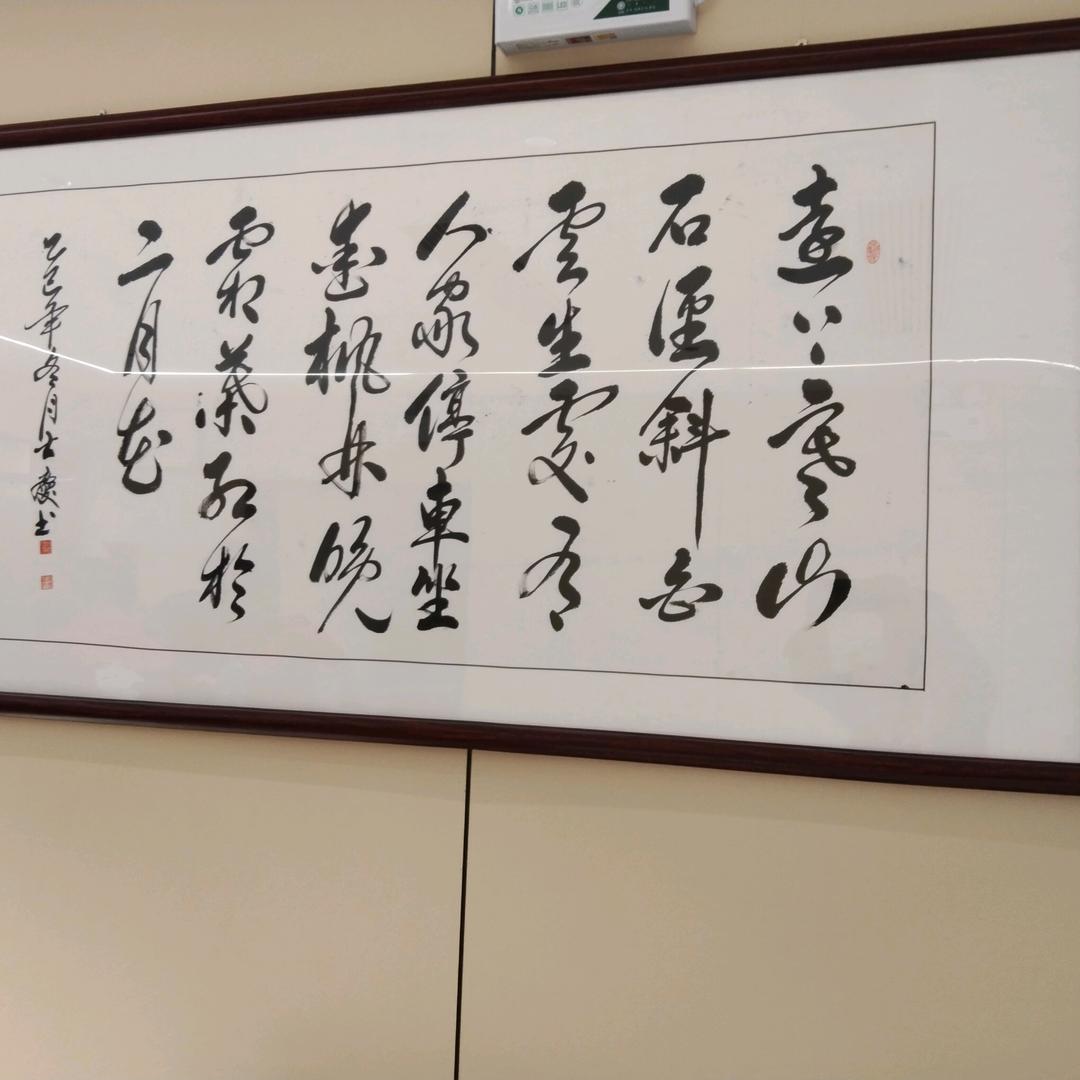 遠上寒山
石徑斜白
雲生處有
人家停車坐
愛楓林晚
霜葉紅於
二月花
乙巳年冬月慶书